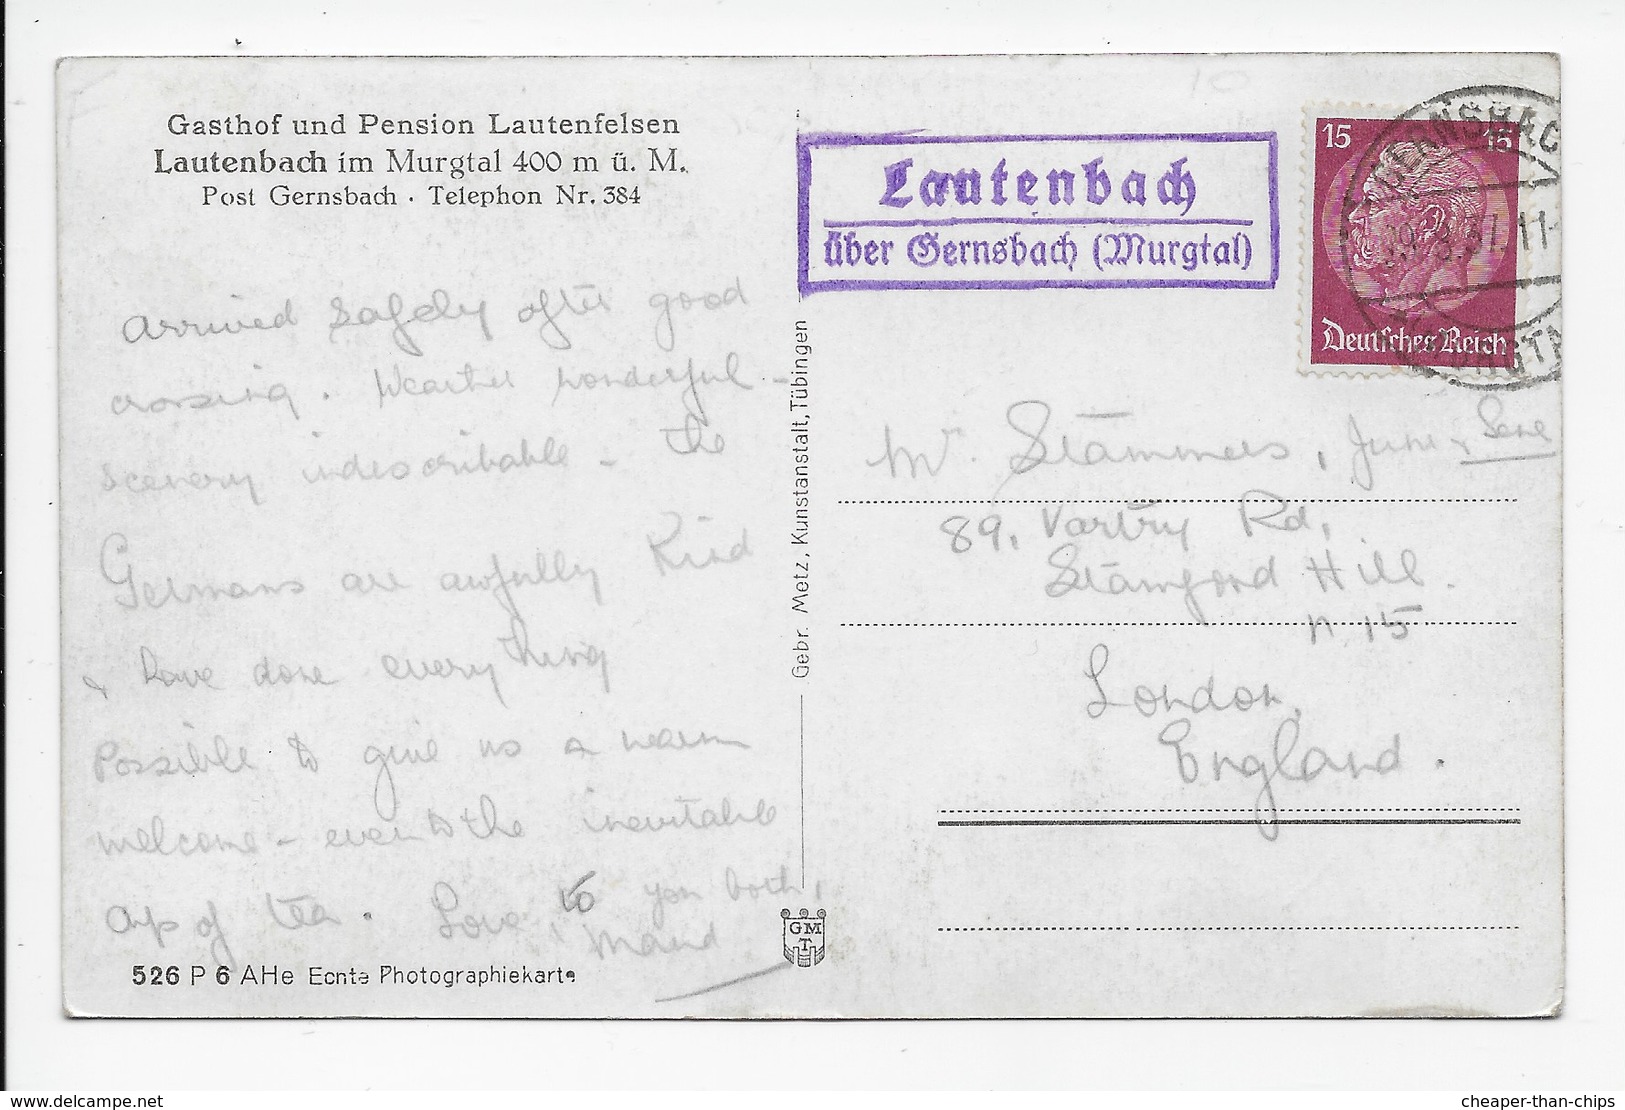 Gasthof und Pension Lautenfelsen
Lautenbach im Murgtal 400 m ü. M.
Post Gernsbach · Telephon Nr. 384
arrived safely after good
crossing. Weather wonderful -
scenery indescribable - the
Germans are awfully kind
& have done everything
possible to give us a warm
welcome - even to the inevitable
cup of tea. Love, to you both,
Maud
526 P 6 AHe Echte Photographiekarte
Gebr. Metz, Kunstanstalt, Tübingen
GMT
Lautenbach
über Gernsbach (Murgtal)
15 15
Deutsches Reich
GERNSBACH
11-
Mr. Stammers, Junr &
89, Vartry Rd,
Stamford Hill.
N. 15
London,
England.
www.delcampe.net
cheaper-than-chips